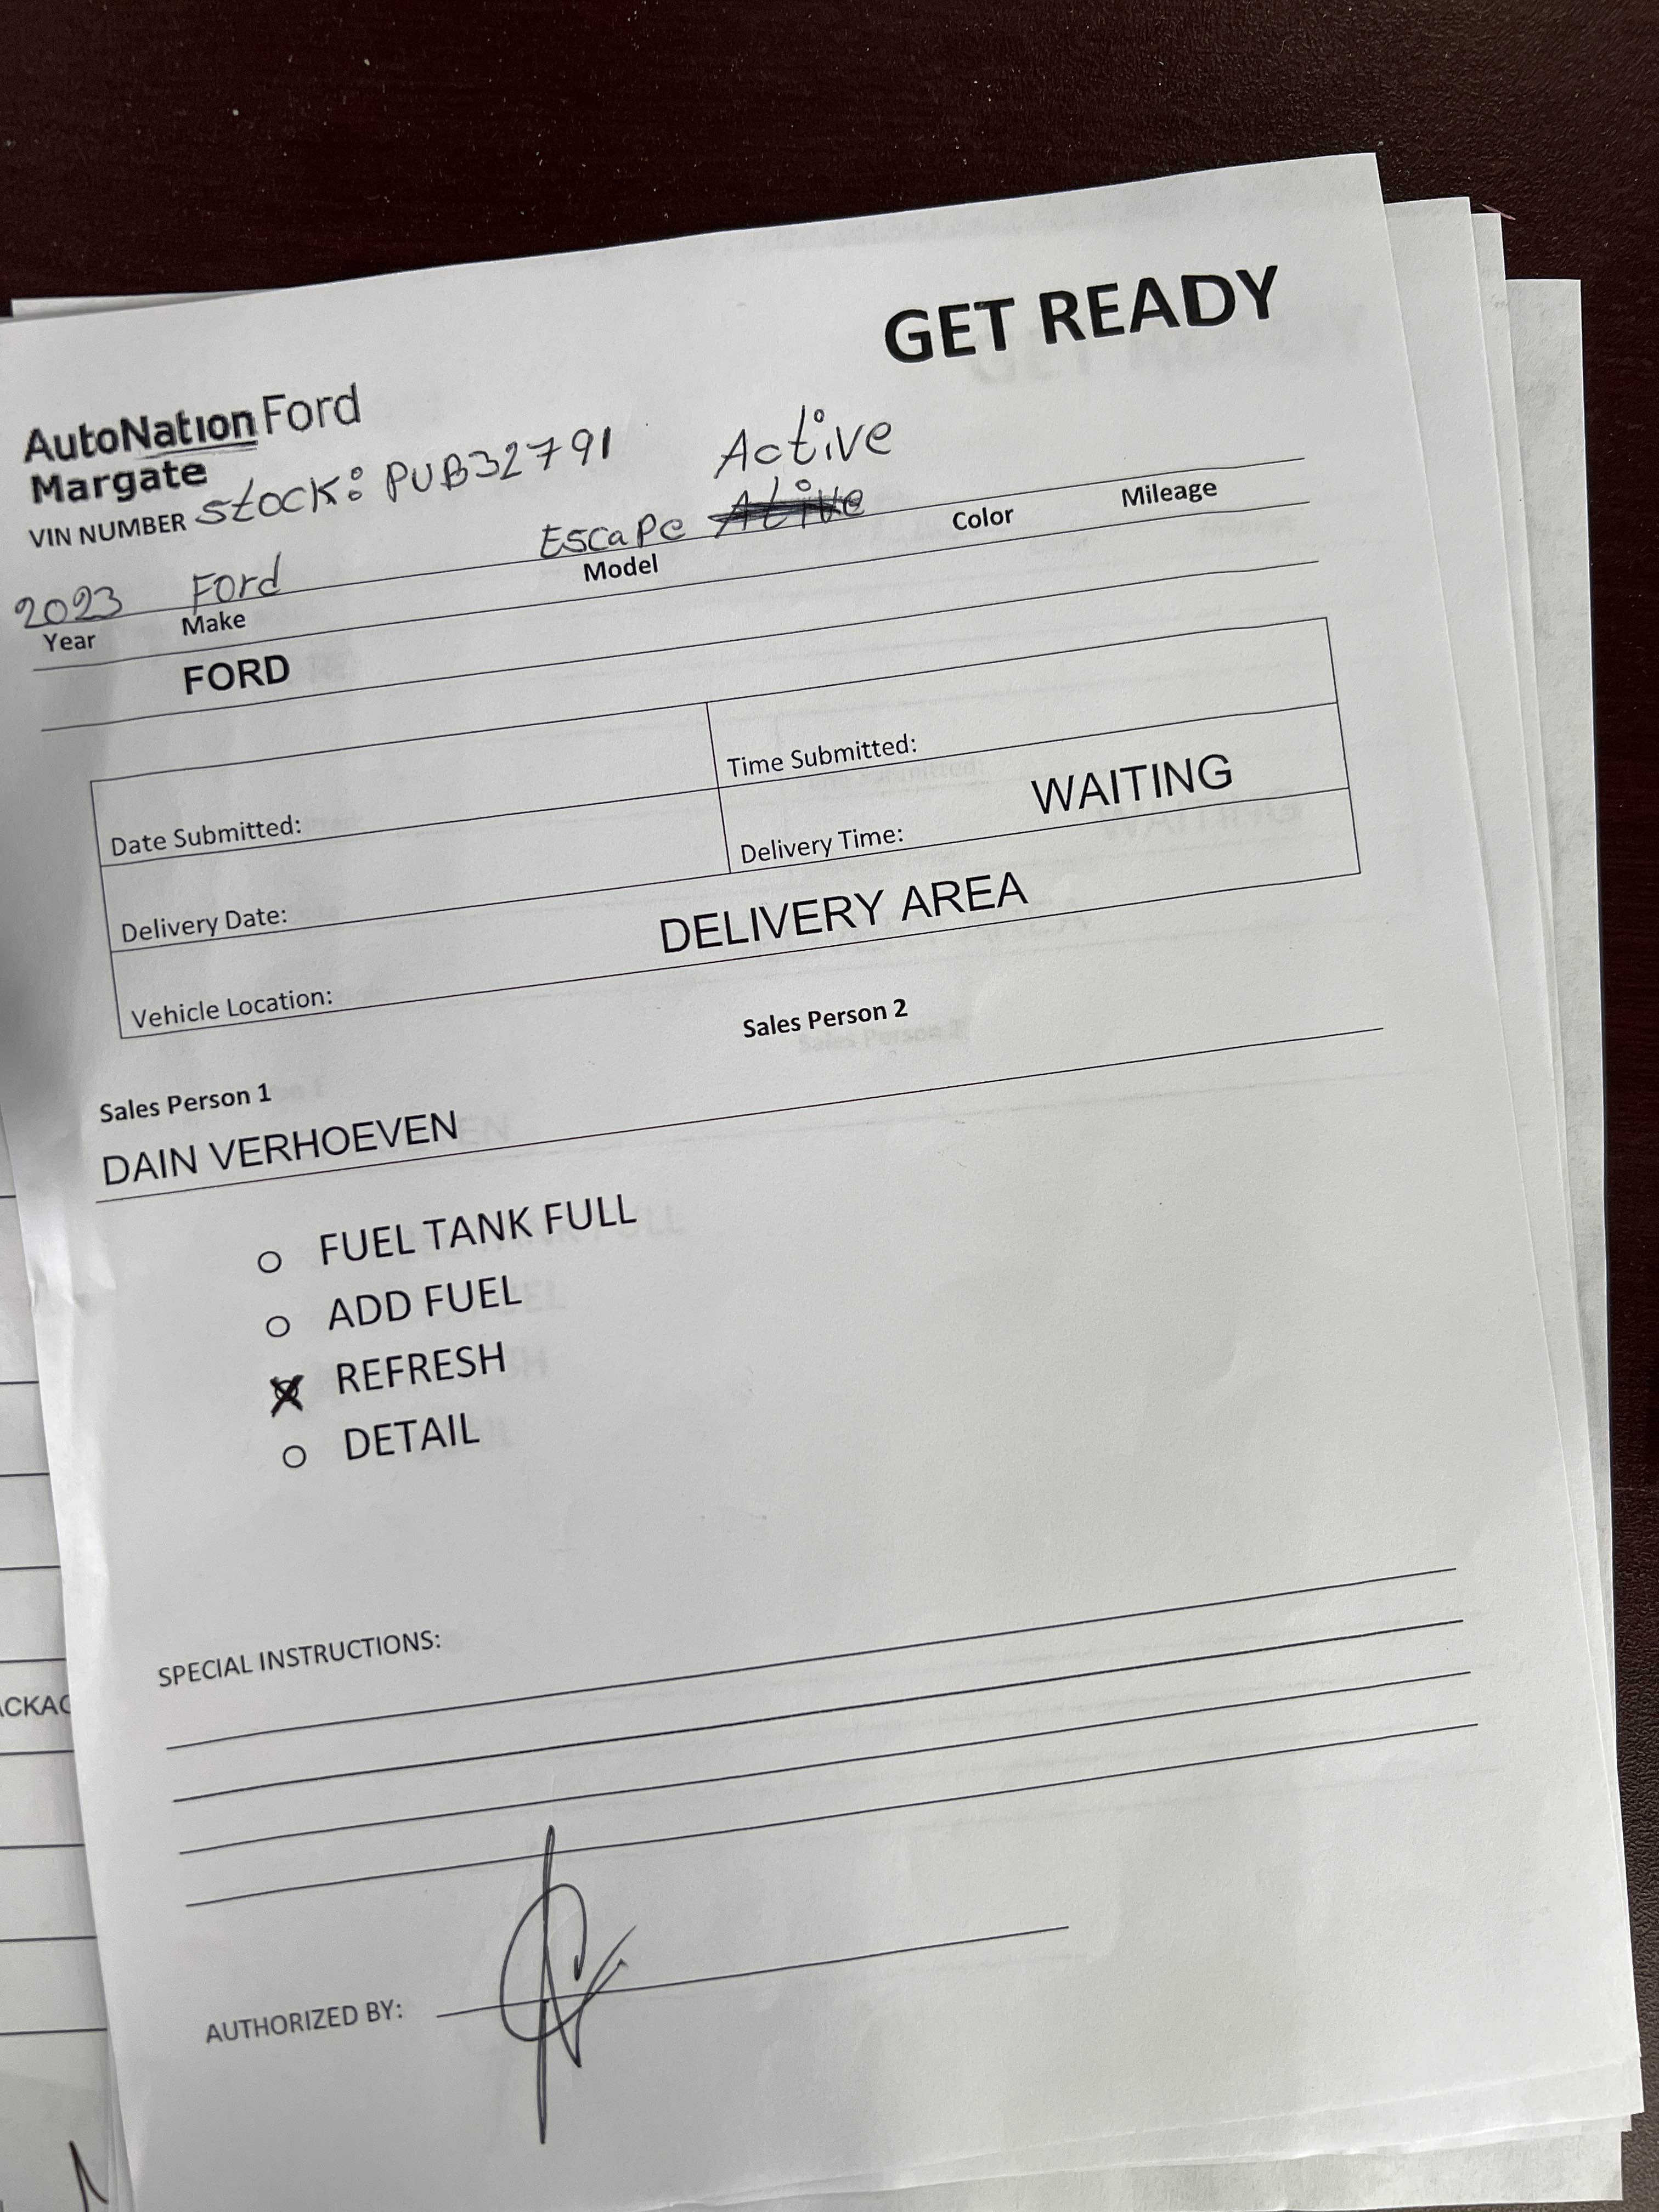 GET READY
AutoNation Ford
Margate
VIN NUMBER stock: PUB32791
Active
2023 Ford Escape Active
Year Make Model Color Mileage
FORD
Date Submitted: Time Submitted:
Delivery Date: Delivery Time: WAITING
Vehicle Location: DELIVERY AREA
Sales Person 1 Sales Person 2
DAIN VERHOEVEN
FUEL TANK FULL
ADD FUEL
REFRESH
DETAIL
SPECIAL INSTRUCTIONS:
ACKAG
AUTHORIZED BY: